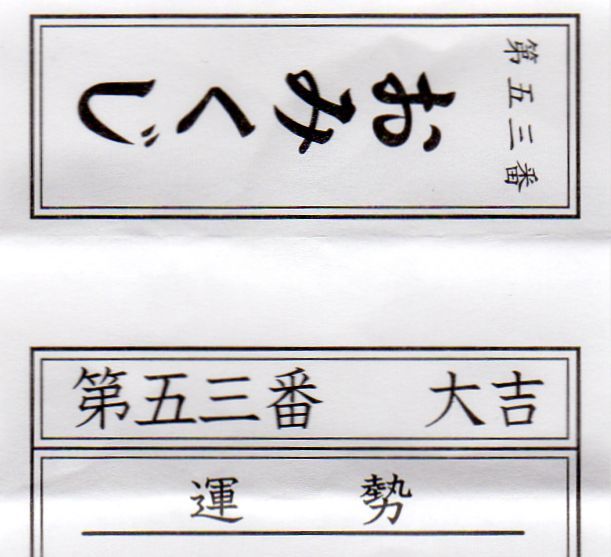 第五三番
おみくじ
第五三番 大吉
運勢